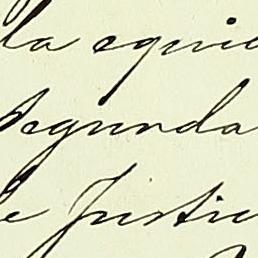 la equi
Segunda
de Justic